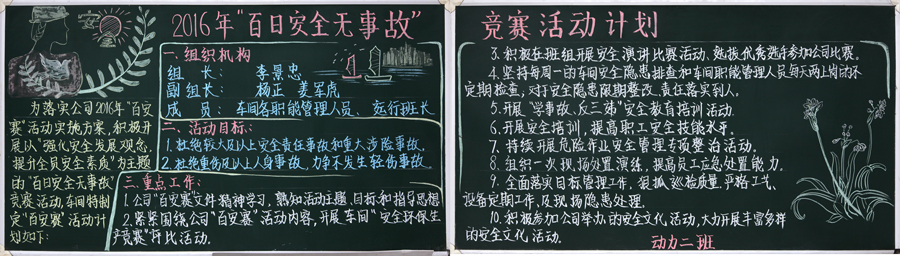 安
2016年“百日安全无事故”
为落实公司2016年“百安
赛”活动实施方案,积极开
展以“强化安全发展观念,
提升全员安全素质”为主题
的“百日安全无事故”
竞赛活动,车间特制
定“百安赛”活动计
划如下:
一.组织机构
组 长: 李景忠
副组长: 杨正 姜军虎
成 员: 车间各职能管理人员、运行班长
二.活动目标:
1.杜绝较大及以上安全责任事故和重大涉险事故.
2.杜绝重伤及以上人身事故,力争不发生轻伤事故.
三.重点工作:
1.公司“百安赛”文件精神学习,熟知活动主题、目标和指导思想
2.紧紧围绕公司“百安赛”活动内容,开展车间“安全环保生
产竞赛”评比活动.
竞赛活动计划
3.积极在班组开展安全演讲比赛活动、选拔优秀选手参加公司比赛.
4.坚持每周一的车间安全隐患排查和车间职能管理人员每天两上岗闭环
定期检查,对于安全隐患限期整改、责任落实到人.
5.开展“学事故、反三违”安全教育培训活动.
6.开展安全培训,提高职工安全技能水平.
7.持续开展危险作业安全管理专项整治活动.
8.组织一次现场处置演练,提高员工应急处置能力.
9.全面落实目标管理工作,狠抓巡检质量、严格工艺、
设备定期工作、及现场隐患处理.
10.积极参加公司举办的安全文化活动,大力开展丰富多样
的安全文化活动.
动力二班